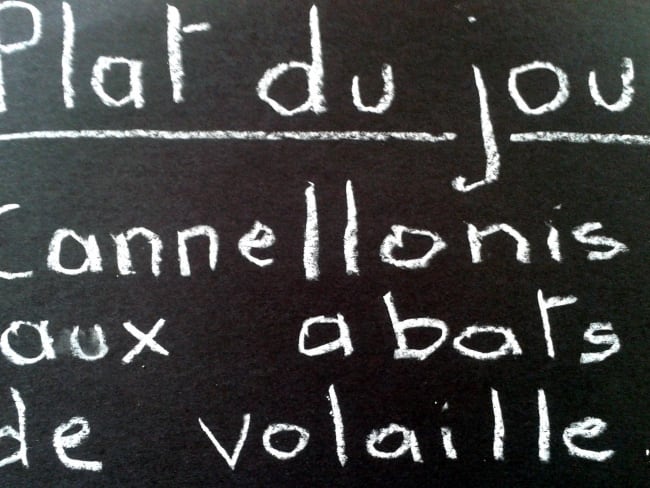 Plat du jou
Cannellonis
aux abats
de volaille.